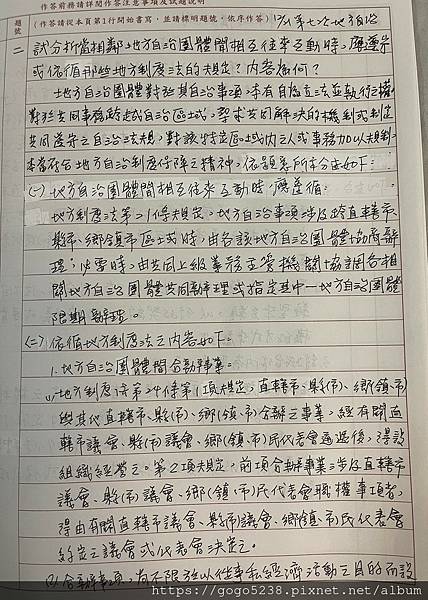 作答前務請詳閱作答注意事項及試題說明
題號
(作答請從本頁第1行開始書寫,並請標明題號,依序作答)
二
試分析當相鄰地方自治團體間相互往來互動時,應遵循
或依循那些地方制度法的規定?內容為何?
地方自治團體對於其自治事項,本有自為立法並執行之權
對於共同事務跨越或自治區域,要求共同解決的機制或制定
共同遵守之自治法規,對該特定區域內之人或事務加以規制,
本當符合地方自治制度保障之精神,依題意所述分述如下:
(一)地方自治團體間相互往來互動時應遵循:
地方制度法第21條規定,地方自治事項涉及跨直轄市、
縣(市)、鄉鎮市區域時,由各該地方自治團體協商辦
理;必要時,由共同上級業務主管機關協調各相
關地方自治團體共同辦理或指定其中一地方自治團體
限期辦理。
(二)依循地方制度法之內容如下:
1.地方自治團體間合辦事業:
(1)地方制度法第24條第1項規定,直轄市、縣(市)、鄉(鎮、市)
與其他直轄市、縣(市)、鄉(鎮、市)合辦之事業,經有關直
轄市議會、縣(市)議會、鄉(鎮、市)民代表會通過後,得設
組織經營之。第2項規定,前項合辦事業涉及直轄市
議會、縣(市)議會、鄉(鎮、市)民代表會職權事項者,
得由有關直轄市議會、縣(市)議會、鄉(鎮、市)民代表會
約定之議會或代表會決定之。
(2)合辦事項,尚不限於以從事私經濟活動之目的而設
https://gogo5238.pixnet.net/album